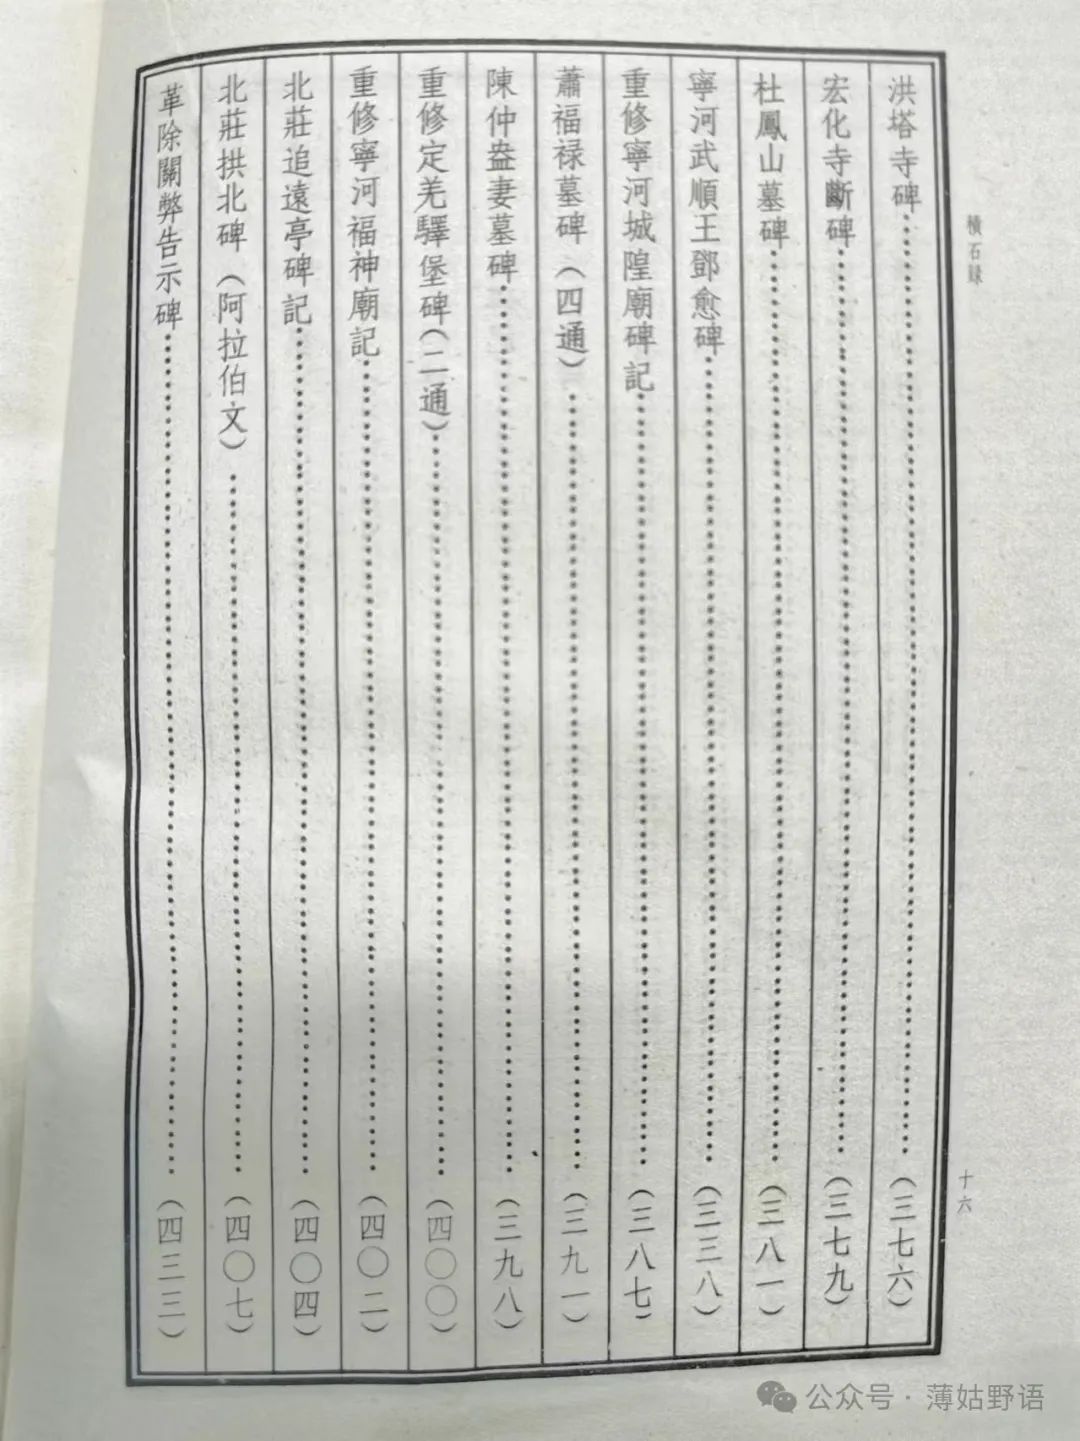 積石録
十六
洪塔寺碑……（三七六）
宏化寺斷碑……（三七九）
杜鳳山墓碑……（三八一）
寧河武順王鄧愈碑……（三三八）
重修寧河城隍廟碑記……（三八七）
蕭福禄墓碑（四通）……（三九一）
陳仲盎妻墓碑……（三九八）
重修定羌驛堡碑（二通）……（四〇〇）
重修寧河福神廟記……（四〇二）
北莊追遠亭碑記……（四〇四）
北莊拱北碑（阿拉伯文）……（四〇七）
革除關弊告示碑……（四三三）
公众号·薄姑野语